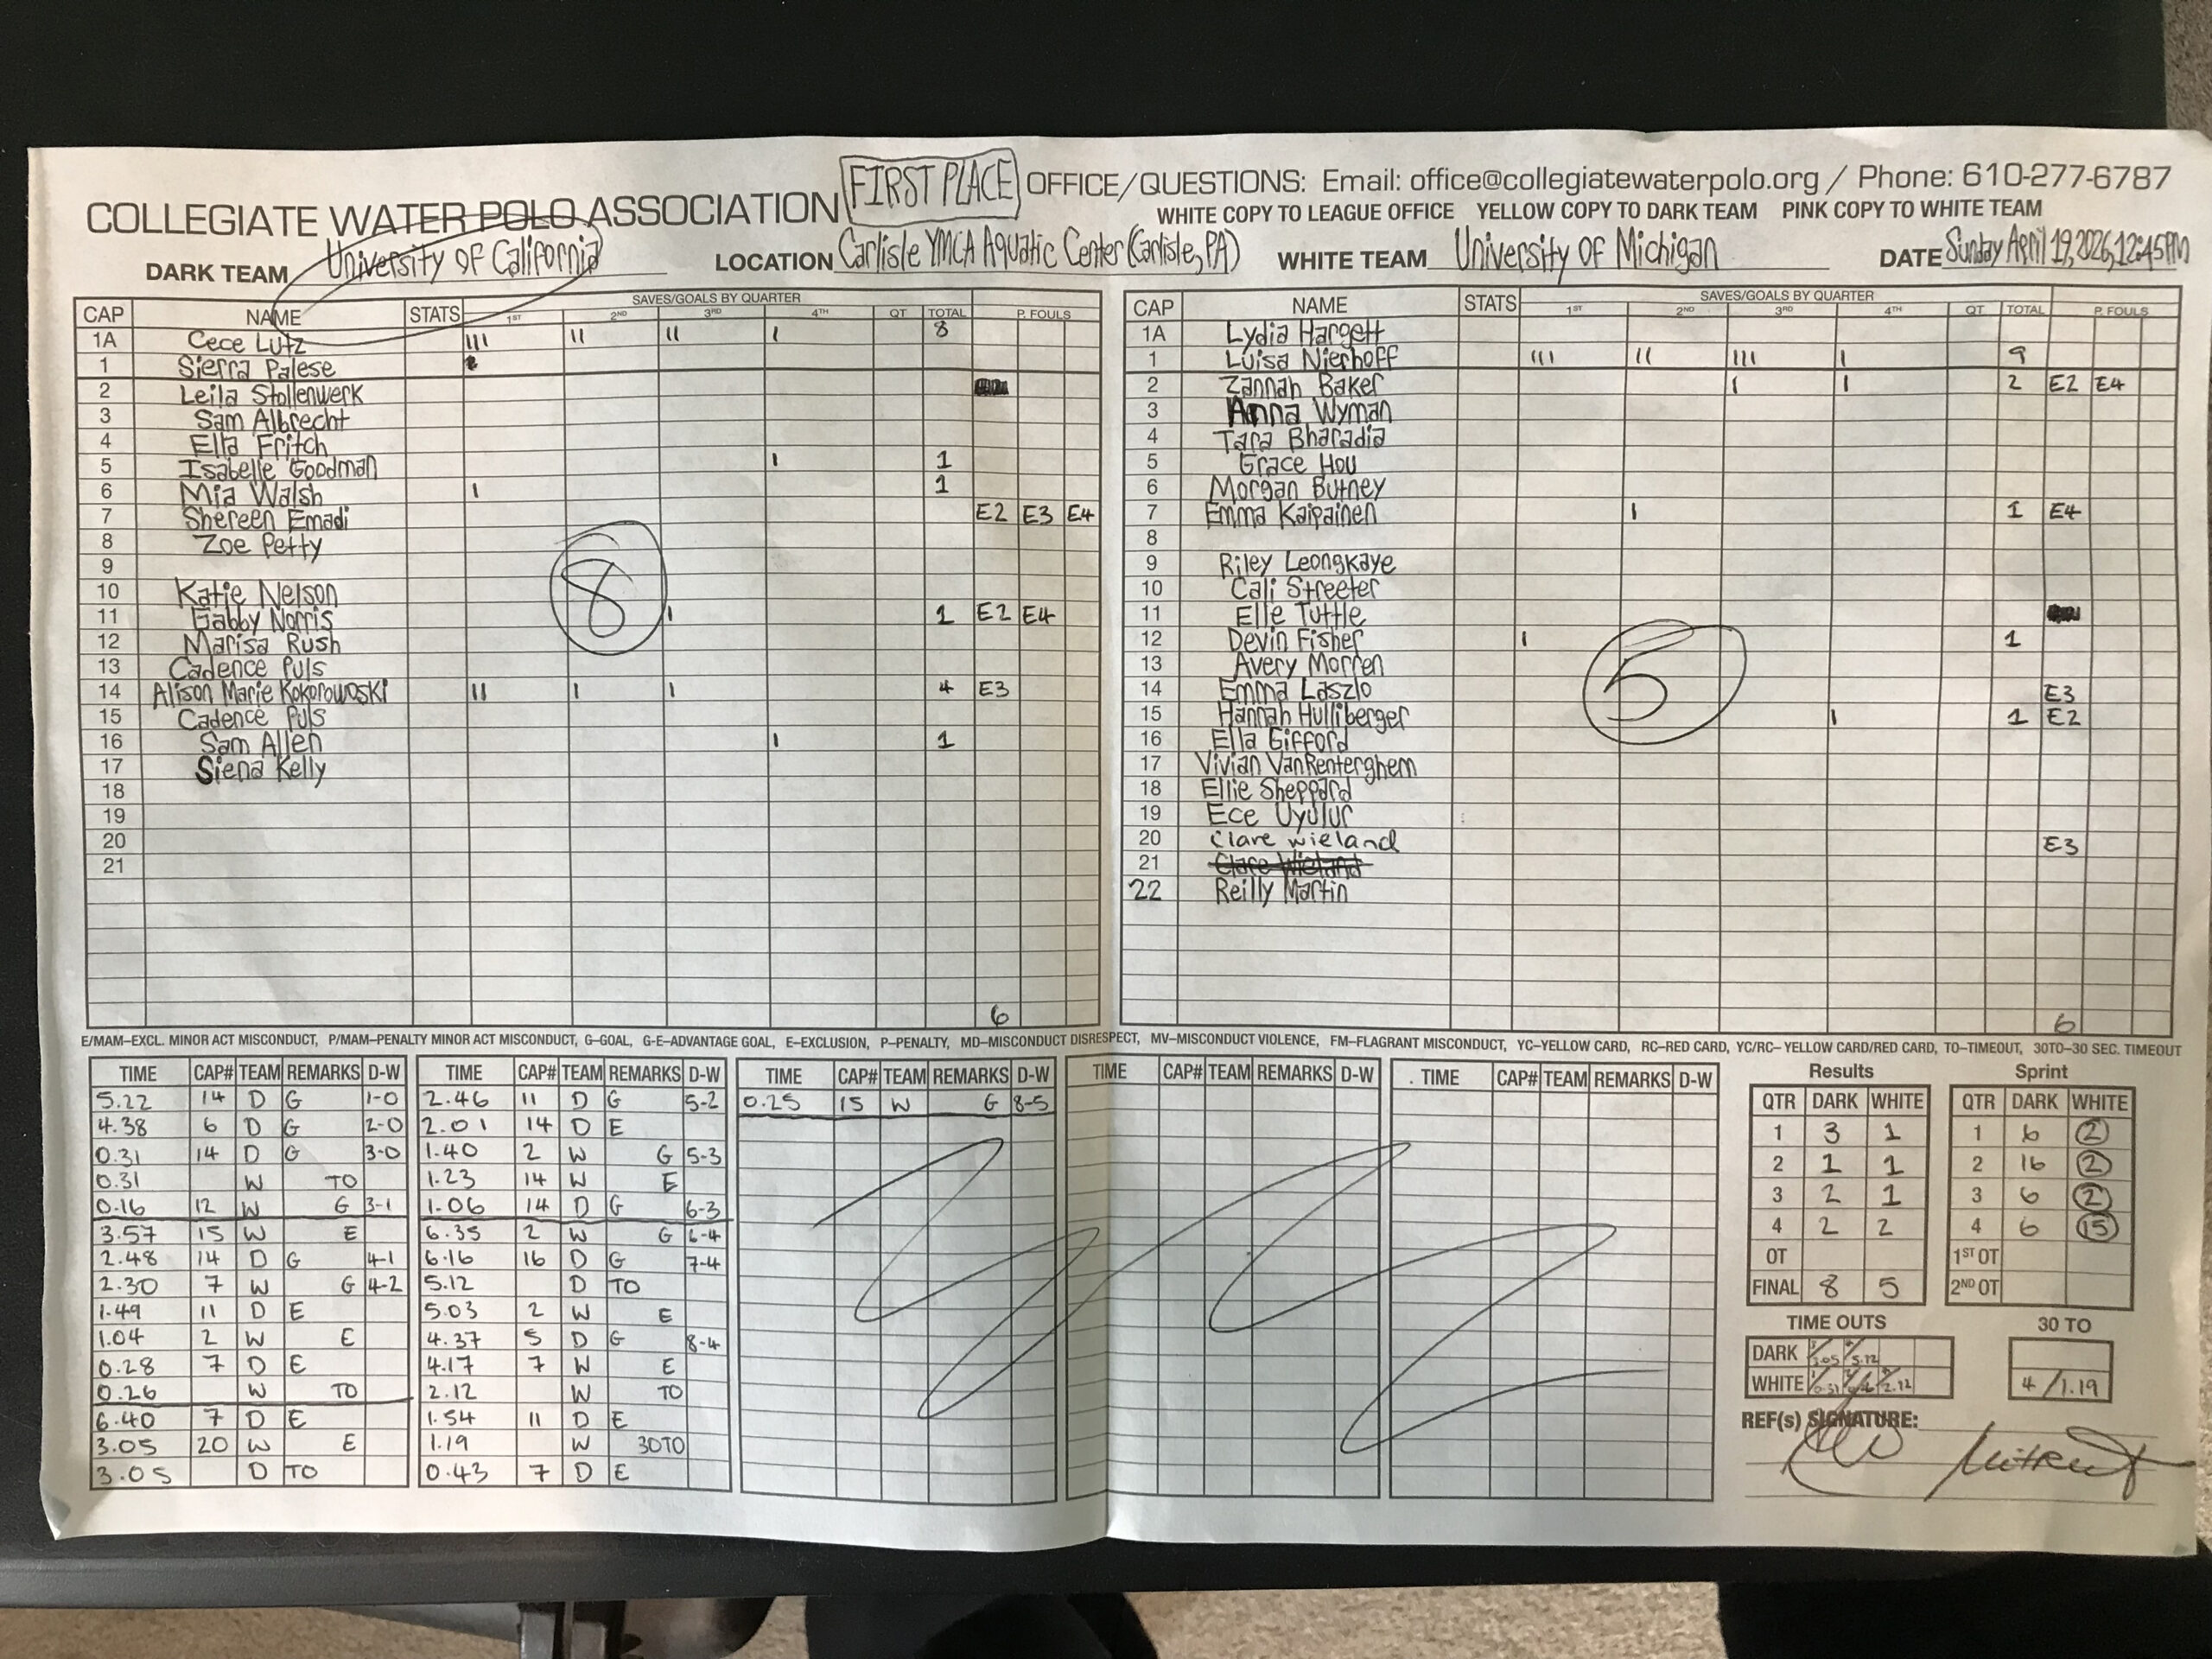 FIRST PLACE
COLLEGIATE WATER POLO ASSOCIATION OFFICE/QUESTIONS: Email: office@collegiatewaterpolo.org / Phone: 610-277-6787
WHITE COPY TO LEAGUE OFFICE YELLOW COPY TO DARK TEAM PINK COPY TO WHITE TEAM
DARK TEAM University of California LOCATION Carlisle YMCA Aquatic Center (Carlisle, PA) WHITE TEAM University of Michigan DATE Sunday April 19, 2026, 12:45PM
CAP NAME STATS SAVES/GOALS BY QUARTER 1ST 2ND 3RD 4TH QT TOTAL P. FOULS
1A Cece Lutz III II II I 8
1 Sierra Palese
2 Leila Stollenwerk
3 Sam Albrecht
4 Ella Fritch
5 Isabelle Goodman I 1
6 Mia Walsh I 1
7 Shereen Emadi E2 E3 E4
8 Zoe Petty
9
10 Katie Nelson
11 Gabby Norris I 1 E2 E4
12 Marisa Rush
13 Cadence Puls
14 Alison Marie Kokorowoski II I I 4 E3
15 Cadence Puls
16 Sam Allen I 1
17 Siena Kelly
18
19
20
21
6
8
CAP NAME STATS SAVES/GOALS BY QUARTER 1ST 2ND 3RD 4TH QT TOTAL P. FOULS
1A Lydia Hargett
1 Luisa Nierhoff III II III I 9
2 Zannah Baker I I 2 E2 E4
3 Anna Wyman
4 Tara Bharadia
5 Grace Hou
6 Morgan Burney
7 Emma Kaipainen I 1 E4
8
9 Riley Leongkaye
10 Cali Streeter
11 Elle Tuttle
12 Devin Fisher I 1
13 Avery Morren
14 Emma Laszlo E3
15 Hannah Hulliberger I 1 E2
16 Ella Gifford
17 Vivian VanRenterghem
18 Ellie Sheppard
19 Ece Uyulur
20 Clare wieland E3
21 Clare Wieland
22 Reilly Martin
6
5
E/MAM–EXCL. MINOR ACT MISCONDUCT, P/MAM–PENALTY MINOR ACT MISCONDUCT, G–GOAL, G-E–ADVANTAGE GOAL, E–EXCLUSION, P–PENALTY, MD–MISCONDUCT DISRESPECT, MV–MISCONDUCT VIOLENCE, FM–FLAGRANT MISCONDUCT, YC–YELLOW CARD, RC–RED CARD, YC/RC– YELLOW CARD/RED CARD, TO–TIMEOUT, 30TO–30 SEC. TIMEOUT
TIME CAP# TEAM REMARKS D-W
5.22 14 D G 1-0
4.38 6 D G 2-0
0.31 14 D G 3-0
0.31 W TO
0.16 12 W G 3-1
3.57 15 W E
2.48 14 D G 4-1
2.30 7 W G 4-2
1.49 11 D E
1.04 2 W E
0.28 7 D E
0.26 W TO
6.40 7 D E
3.05 20 W E
3.05 D TO
TIME CAP# TEAM REMARKS D-W
2.46 11 D G 5-2
2.01 14 D E
1.40 2 W G 5-3
1.23 14 W E
1.06 14 D G 6-3
6.35 2 W G 6-4
6.16 16 D G 7-4
5.12 D TO
5.03 2 W E
4.37 5 D G 8-4
4.17 7 W E
2.12 W TO
1.54 11 D E
1.19 W 30TO
0.43 7 D E
TIME CAP# TEAM REMARKS D-W
0.25 15 W G 8-5
TIME CAP# TEAM REMARKS D-W
TIME CAP# TEAM REMARKS D-W
Results
QTR DARK WHITE
1 3 1
2 1 1
3 2 1
4 2 2
OT
FINAL 8 5
Sprint
QTR DARK WHITE
1 6 2
2 16 2
3 6 2
4 6 15
1ST OT
2ND OT
TIME OUTS
DARK 3/3.05 4/5.12
WHITE 1/0.31 2.12
30 TO
4/1.19
REF(s) SIGNATURE: